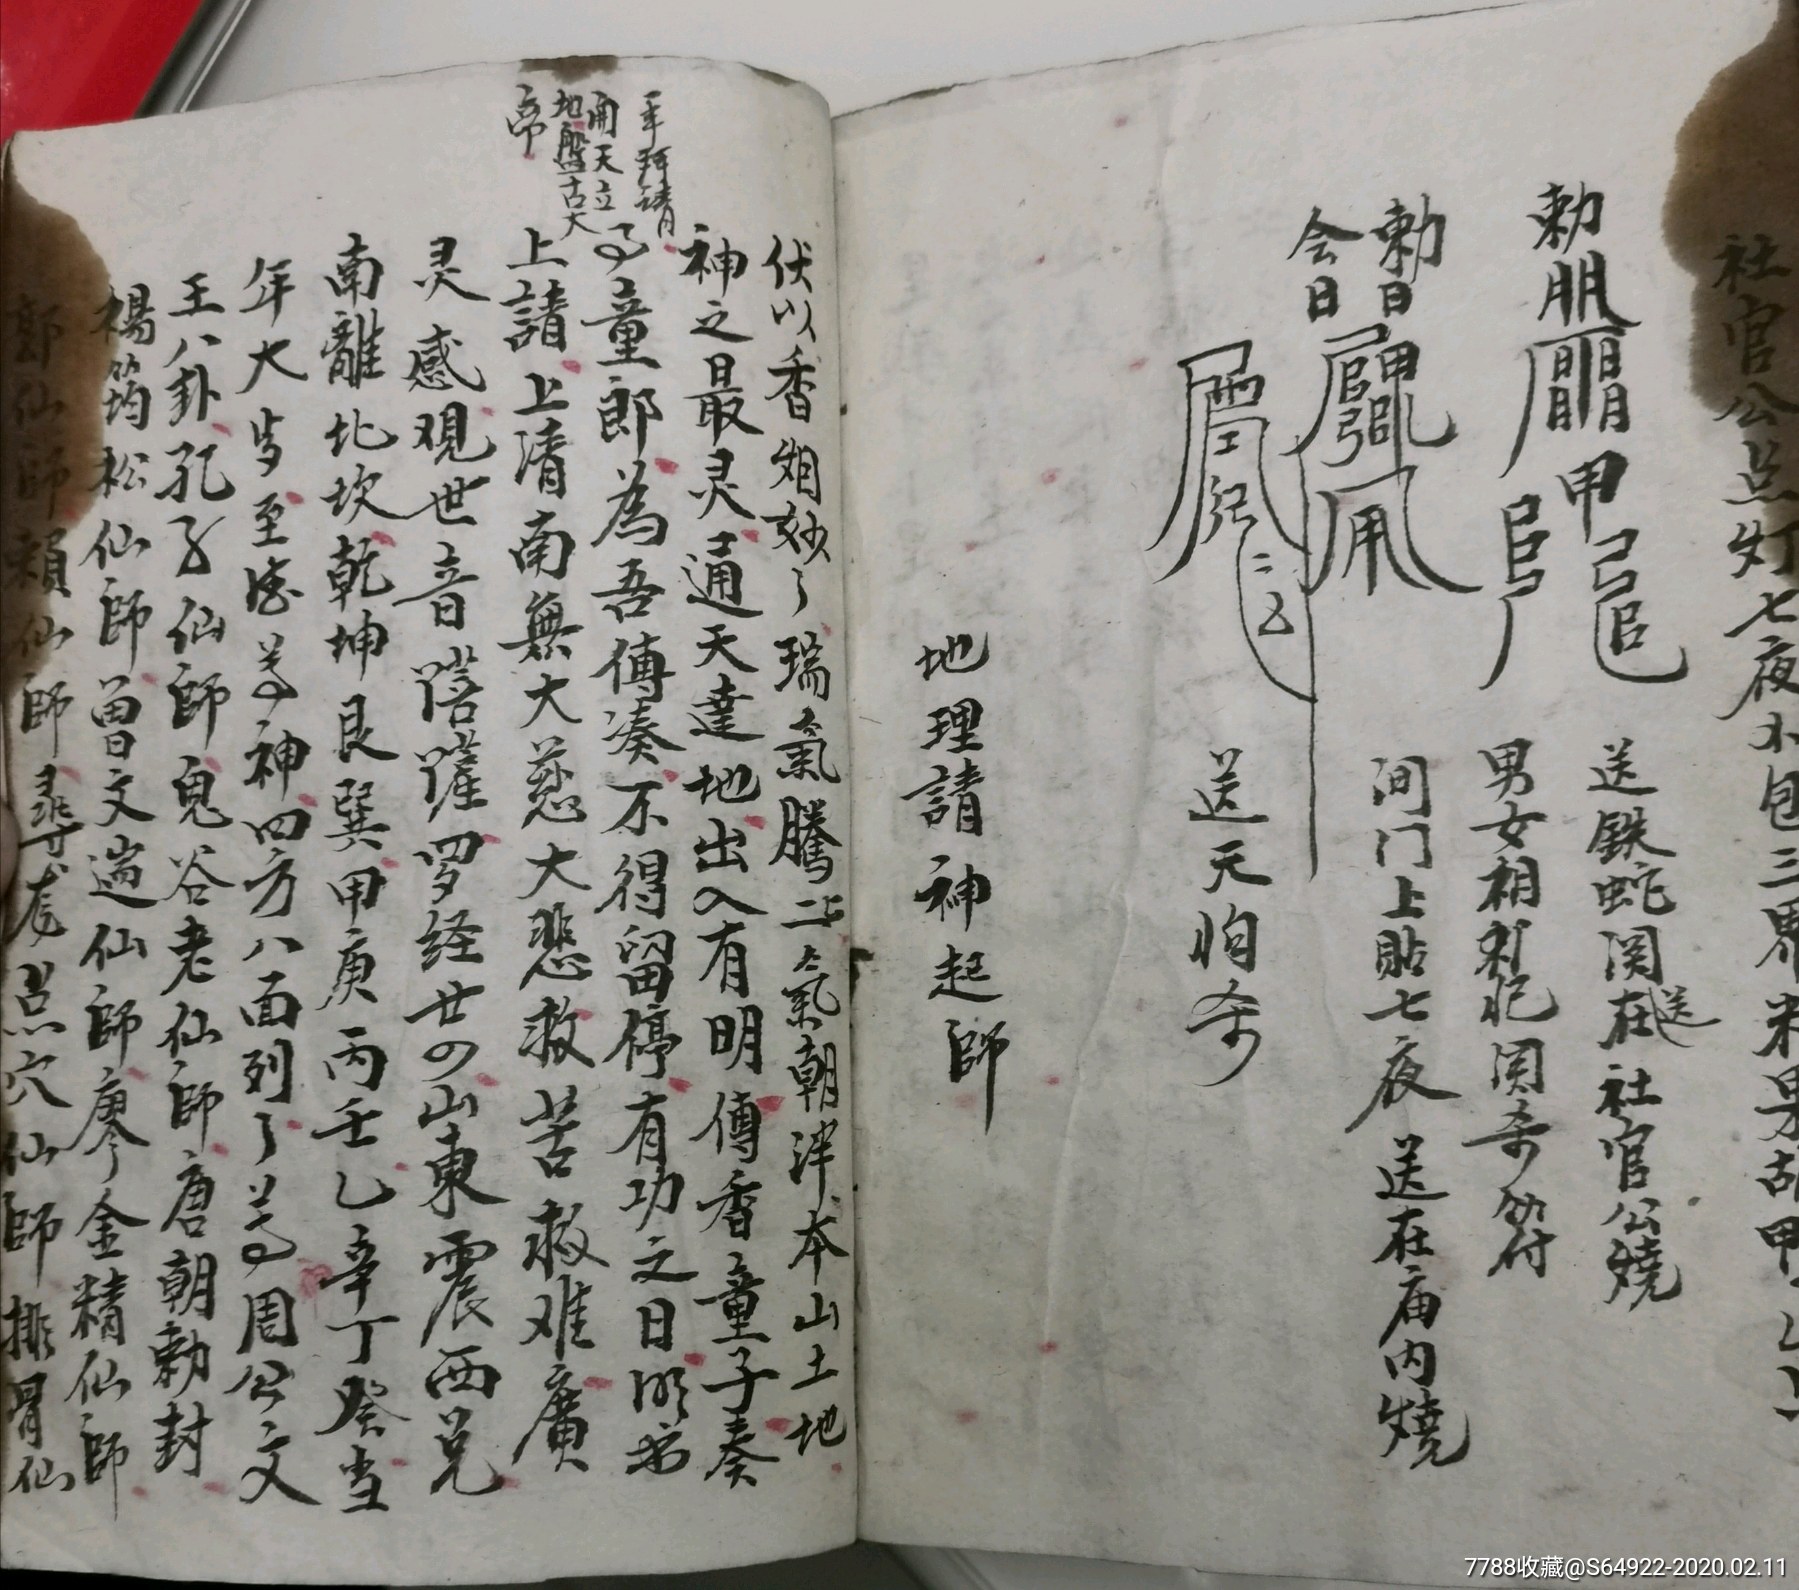 社官公点灯七夜木包三界米果胡甲
勅
甲
送鉄蛇関在送社官公燒
男女相 関 符
勅日
会日
间门上貼七夜送在庙内燒
送天 
地理請神起師
伏以香烟妙々瑞氣騰二氣朝 本山土地
神之最灵通天達地出入有明傳香童子奏
事童郎為吾傳凑不得留停有功之日 书
年拜请
開天立
地盤古大
帝
上請上清南無大慈大悲救苦救难廣
灵感观世音菩薩罗经廿四山東震西兑
南離北坎乾坤艮巽甲庚丙壬乙辛丁癸当
年大岁至德等神四方八面列々等 周公文
王八卦孔子仙師鬼谷老仙師唐朝勅封
楊筠松仙師曽文遄仙師廖金精仙師
郭仙師頼仙師尋龙点穴仙師排 仙
7788收藏@S64922-2020.02.11